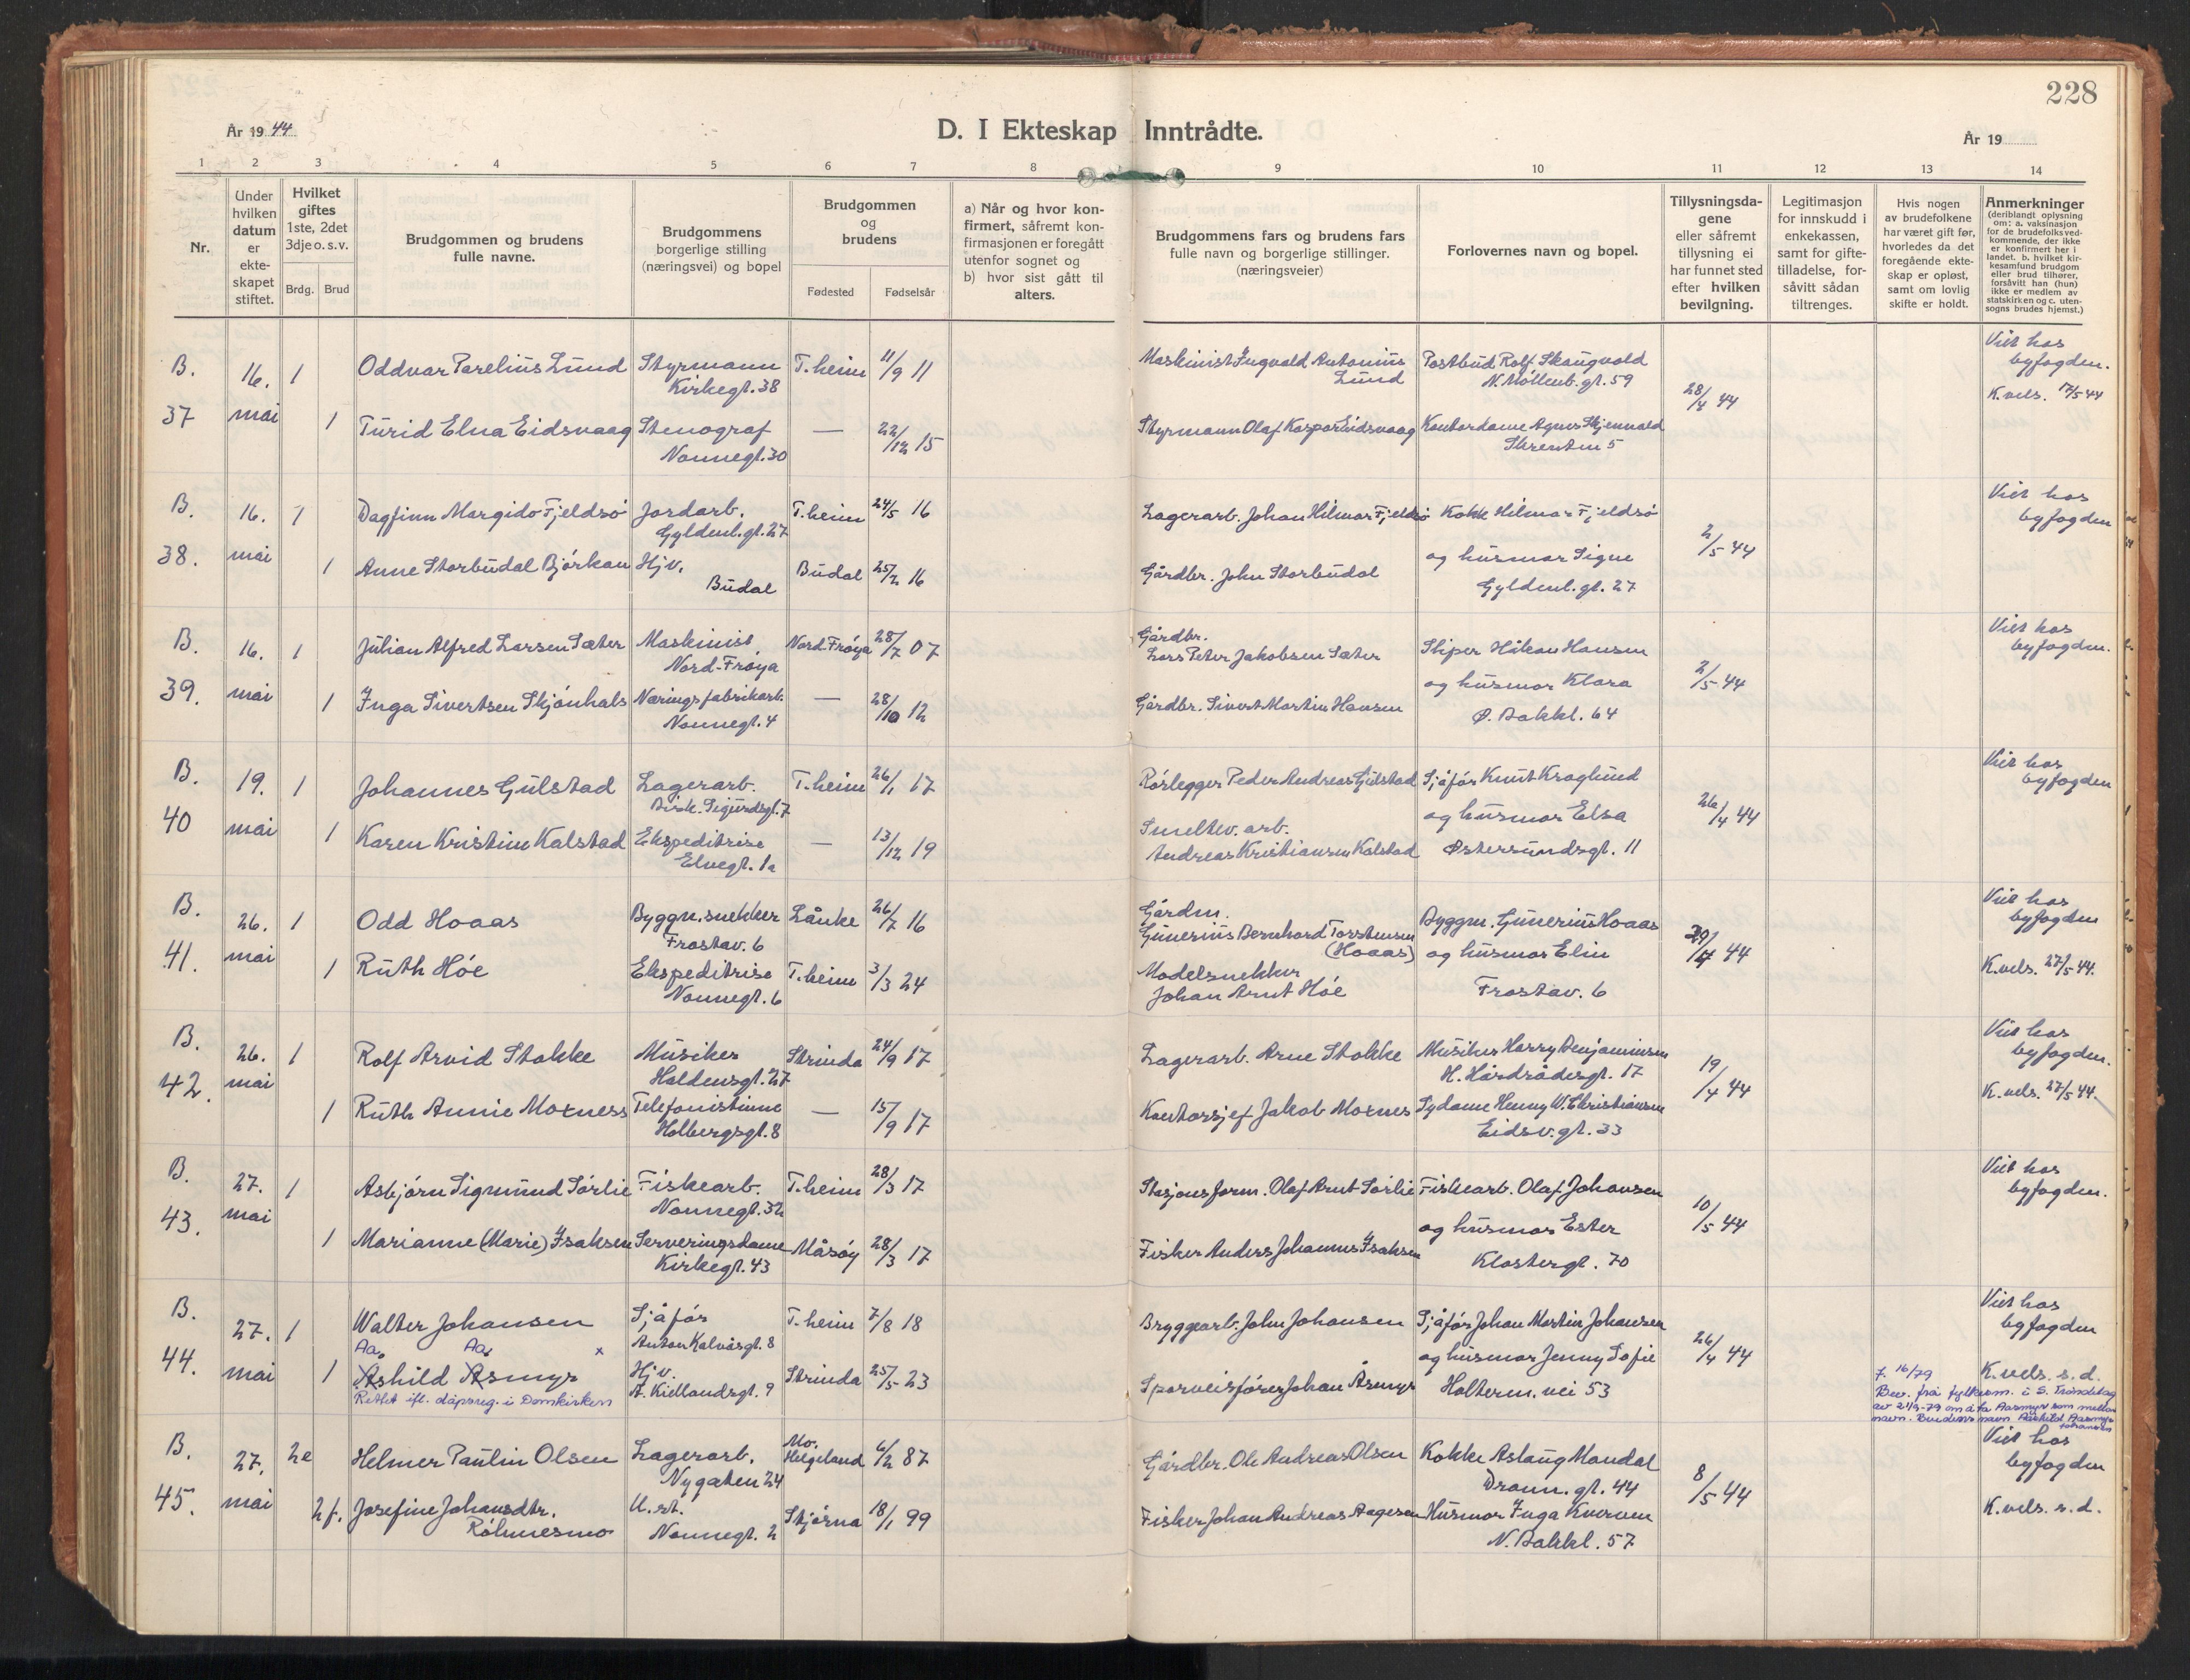 228
År 19 44
D. I Ekteskap Inntrådte.
År 19
1 2 3 4 5 6 7 8 9 10 11 12 13 14
Nr.
Under hvilken datum er ekte-skapet stiftet.
Hvilket giftes 1ste, 2det 3dje o. s. v.
Brdg. Brud
Brudgommen og brudens fulle navne.
Brudgommens borgerlige stilling (næringsvei) og bopel
Brudgommen og brudens
Fødested Fødselsår
a) Når og hvor kon-firmert, såfremt kon-firmasjonen er foregått utenfor sognet og b) hvor sist gått til alters.
Brudgommens fars og brudens fars fulle navn og borgerlige stillinger. (næringsveier)
Forlovernes navn og bopel.
Tillysningsda-gene eller såfremt tillysning ei har funnet sted efter hvilken bevilgning.
Legitimasjon for innskudd i enkekassen, samt for gifte-tilladelse, for-såvitt sådan tiltrenges.
Hvis nogen av brudefolkene har været gift før, hvorledes da det foregående ekte-skap er opløst, samt om lovlig skifte er holdt.
Anmerkninger (deriblandt oplysning om: a. vaksinasjon for de brudefolks ved-kommende, der ikke er konfirmert her i landet. b. hvilket kir-kesamfund brudgom eller brud tilhører, forsåvitt han (hun) ikke er medlem av statskirken og c. uten-sogns brudes hjemst.)
B. 16. 1 Oddvar Parelius Lund Styrmann T.heim 11/9 11 Maskinist Ingvald Antonius Postbud Rolf Skaugvold Viet hos
Kirkegt. 38 Lund N. Møllenb. gt. 59 28/4 44 byfogden.
K.vels. 17/5 44
37 mai 1 Turid Elna Eidsvaag Stenograf — 22/12 15 Styrmann Olaf Kaspar Eidsvaag Kontordame Agnes Skjemvold
Nonnegt. 30 Skrenten 5
B. 16. 1 Dagfinn Margido Fjeldsø Jordarb. T.heim 24/5 16 Lagerarb. Johan Hilmar Fjeldsø Kokk Hilmar Fjeldsø Viet hos
Gyldenl. gt. 27 2/5 44 byfogden
38. mai 1 Anne Storbudal Bjørkan Hjv. Budal 25/2 16 Gårdbr. John Storbudal og husmor Signe
Budal Gyldenl. gt. 27
B. 16. 1 Julian Alfred Larsen Sæter Maskinist Nord-Frøya 28/7 07 Gårdbr. Viet hos
Nord-Frøya Lars Peter Jakobsen Sæter Stiper Håkon Hansen byfogden.
39. mai 1 Inga Sivertsen Skjønhals Næringsfabrikarb. — 28/10 12 Gårdbr. Sivert Martin Hansen og husmor Klara 2/5 44
Nonnegt. 4 Ø. Bakkl. 64
B. 19. 1 Johannes Gulstad Lagerarb. T.heim 26/1 17 Rørlegger Peder Andreas Gulstad Sjåfør Knut Kroglund Viet hos
Bisk. Sigurdsgt. 7 og husmor Elsa 26/4 44 byfogden
40 mai 1 Karen Kristine Kalstad Ekspeditrise — 13/12 19 Smeltev. arb.
Elvegt. 1a Andreas Kristiansen Kalstad Østersundsgt. 11
B. 26. 1 Odd Hoaas Byggn. snekker Lånke 26/7 16 Gårdm. Viet hos
Frostav. 6 Gunerius Bernhard Torstensen Byggm. Gunerius Hoaas byfogden
(Hoaas) og husmor Elin 29/4 44
41. mai 1 Ruth Høe Ekspeditrise T.heim 3/3 24 Modelsnekker K.vels. 27/5 44.
Nonnegt. 6 Johan Arnt Høe Frostav. 6
B. 26. 1 Rolf Arvid Stokke Musiker Strinda 24/9 17 Lagerarb. Arne Stokke Musiker Harry Benjaminsen Viet hos
Holdensgt. 27 H. Hårdrådesgt. 17 19/4 44 byfogden.
42. mai 1 Ruth Annie Moxness Telefonistinne — 15/9 17 Kontorsjef Jakob Moxnes Sydame Henny W. Christiansen K.vels. 27/5 44.
Holbergsgt. 8 Eidsv. gt. 33
B. 27. 1 Asbjørn Sigmund Sørlie Fiskearb. T.heim 28/3 17 Stasjonsform. Olaf Arnt Sørlie Fiskearb. Olaf Johansen Viet hos
Nonnegt. 32 og husmor Ester 10/5 44 byfogden.
43. mai 1 Marianne (Marie) Isaksen Serveringsdame Måsøy 28/3 17 Fisker Anders Johannes Isaksen
Kirkegt. 43 Klostergt. 70
B. 27. 1 Walter Johansen Sjåfør T.heim 7/8 18 Bryggearb. John Johansen Sjåfør Johan Martin Johansen Viet hos
Anton Kalvåsgt. 8 og husmor Jenny Sofie 26/4 44 byfogden
Aa Aa x
44. mai 1 Ashild Asmyr Hjv. Strinda 25/5 23 Sporveisfører Johan Åsmyr Holterm. vei 53 K.vels. s. d.
A. Kiellandsgt. 9
Rettet ifl. dåpsreg. i Domkirken
J. 16/79
Bev. fra fylkesm. i S. Trøndelag
av 21/9-79 om å ta Aasmyr som mellom
navn. Brudens navn Aashild Aasmyr
Johansen
B. 27. 2e Helmer Paulin Olsen Lagerarb. Mo, Helgeland 6/2 87 Gårdbr. Ole Andreas Olsen Kokke Aslaug Mandal Viet hos
Nygaten 24 Dronn. gt. 44 8/5 44 byfogden
45. mai 2 f. Josefine Johansdtr. U. st. Stjørna 18/1 99 Fisker Johan Andreas Aagesen Husmor Inga Kverven K.vels. s. d.
Røhnesmo Nonnegt. 2 N. Bakkl. 57